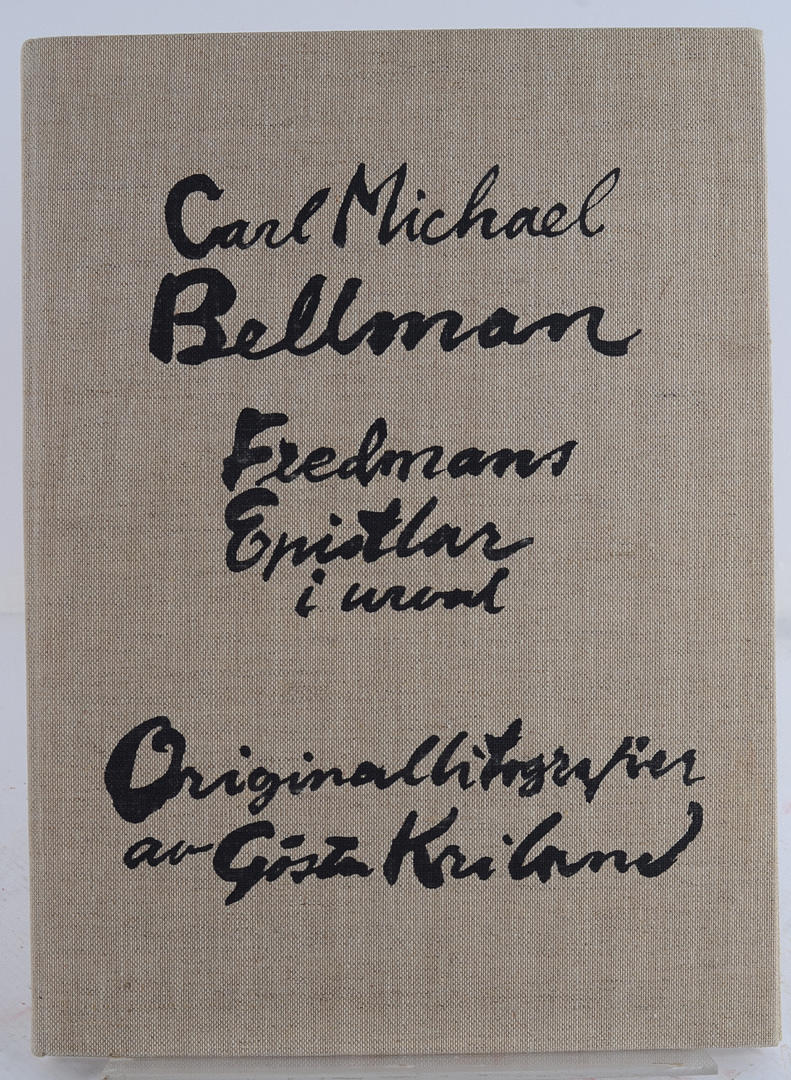 Carl Michael
Bellman
Fredmans
Epistlar
i urval
Originallitografier
av Gösta Kriland